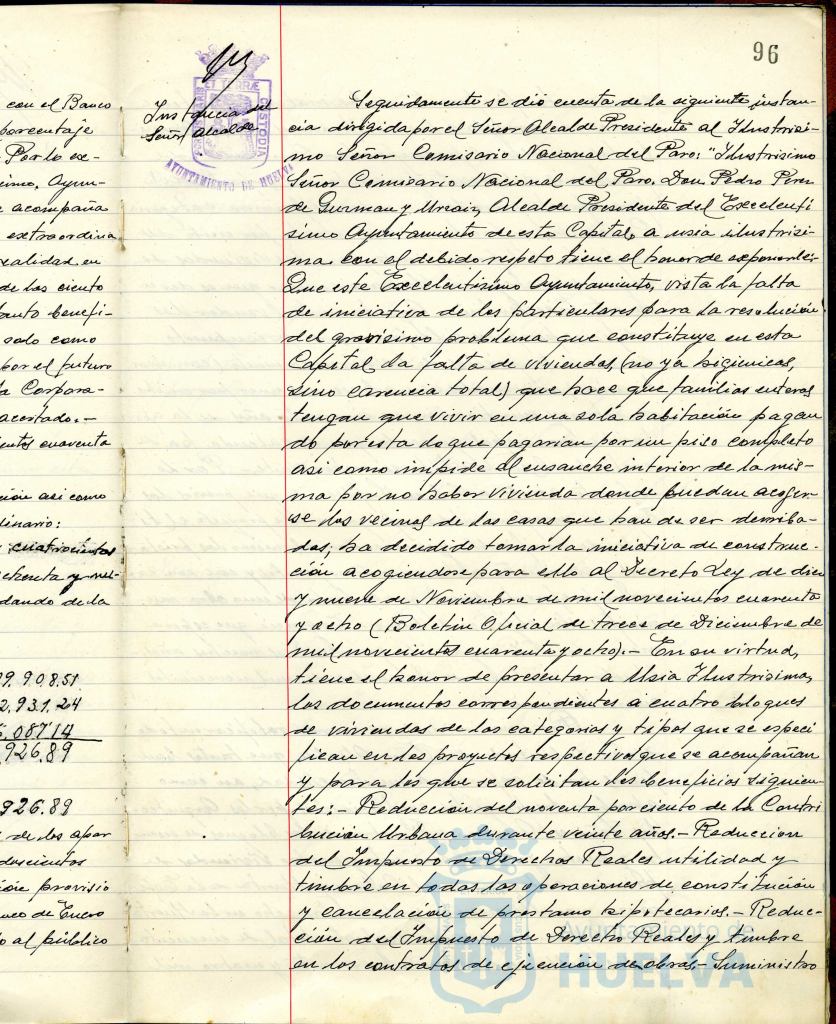 96
con el Banco
porcentaje
Por lo ex-
simo. Ayun-
e acompaña
extraordina
realidad en
de los ciento
tanto benefi-
solo como
por el futuro
la Corpora-
acertado.-
cientos cuarenta
ción asi como
dinario:
cuatrocientas
ochenta y nue-
dando de la
99.908.51
2,931.24
087 14
926.89
926.89
de los apor
doscientos
ción provisio
nco de Enero
to al público
Instancia del
Señor Alcalde
ET TERRAE
CUSTODIA
AYUNTAMIENTO DE HUELVA
Seguidamente se dió cuenta de la siguiente instan-
cia dirigida por el Señor Alcalde Presidente al Ilustrisi-
mo Señor Comisario Nacional del Paro: "Ilustrisimo
Señor Comisario Nacional del Paro. Don Pedro Pérez
de Guzman y Urzaiz, Alcalde Presidente del Excelenti
simo Ayuntamiento de esta Capital, a usia ilustrisi-
ma con el debido respeto tiene el honor de exponerle:
Que este Excelentisimo Ayuntamiento, vista la falta
de iniciativa de los particulares para la resolución
del gravisimo problema que constituye en esta
Capital la falta de viviendas, (no ya higienicas,
sino carencia total) que hace que familias enteras
tengan que vivir en una sola habitación pagan
do por esta lo que pagarian por un piso completo
asi como impide el ensanche interior de la mis-
ma por no haber vivienda donde puedan acoger-
se los vecinos de las casas que han de ser derriba-
das; ha decidido tomar la iniciativa de construc-
ción acogiendose para ello al Decreto Ley de diez
y nueve de Noviembre de mil novecientos cuarenta
y ocho (Boletin Oficial de trece de Diciembre de
mil novecientos cuarenta y ocho).- En su virtud,
tiene el honor de presentar a Usia Ilustrisima,
los documentos correspondientes a cuatro bloques
de viviendas de las categorias y tipos que se especi
fican en los proyectos respectivos que se acompañan
y para los que se solicitan los beneficios siguien-
tes:- Reducción del noventa por ciento de la Contri
bución Urbana durante veinte años.- Reduccion
del Impuesto de Derechos Reales utilidad y
timbre en todas las operaciones de constitución
y cancelación de prestamo hipotecarios.- Reduc-
ción del Impuesto de Derecho Reales y timbre
en los contratos de ejecución de obras.- Suministro
Ayuntamiento de
HUELVA